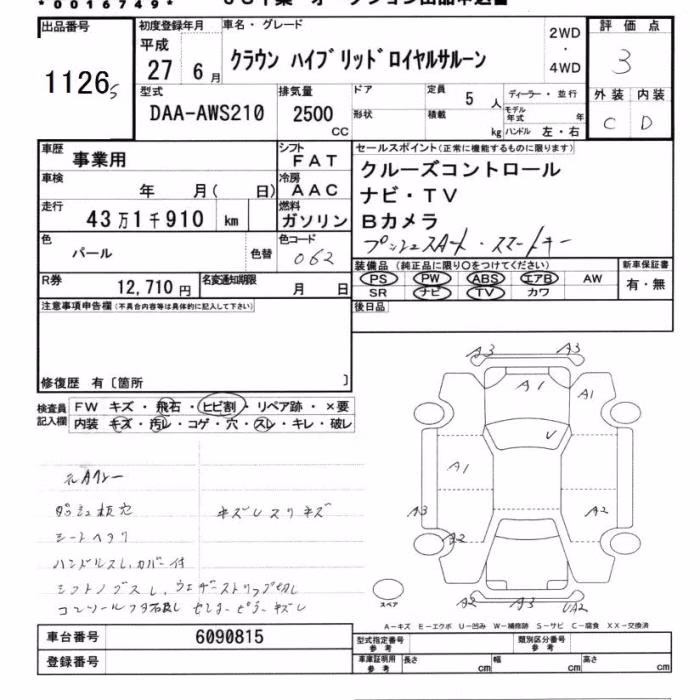 *0016749*
出品番号 初度登録年月 車名・グレード 2WD ・ 4WD 評価点
1126 平成 27 6月 クラウン ハイブリッドロイヤルサルーン 3
型式 排気量 ドア 定員 5 人 ディーラー・並行 外装 内装
DAA-AWS210 2500 CC 形状 積載 kg モデル年式 年 ハンドル 左・右 C D
車歴 事業用 シフト FAT セールスポイント(正常に機能するものに限ります)
車検 年 月( 日) 冷房 AAC クルーズコントロール
走行 43万1千910 km 燃料 ガソリン ナビ・TV
Bカメラ
色 パール 色替 色コード 062 プッシュスタート・スマートキー
R券 12,710円 名変通知期限 月 日 装備品(純正品に限り○をつけてください) 新車保証書
PS PW ABS エアB AW 有・無
SR ナビ TV カワ
注意事項申告欄(不具合内容等は具体的に記入して下さい) 後日品
修復歴 有〔箇所 〕
検査員記入欄 FW キズ・飛石・ヒビ割・リペア跡・×要
内装 キズ・汚レ・コゲ・穴・スレ・キレ・破レ
A3 A3
A1 A1
U
A1
A3 A2
A2
A2 A3 UA2
元タクシー
キズレスリキズ
シートヘタリ
ハンドルスレ、カバー付
スペア
A-キズ E-エクボ U-凹み W-補修跡 S-サビ C-腐食 XX-交換済
車台番号 6090815 型式指定番号 参考 類別区分番号 参考
登録番号 車庫証明用 参考 長さ cm 幅 cm 高さ cm